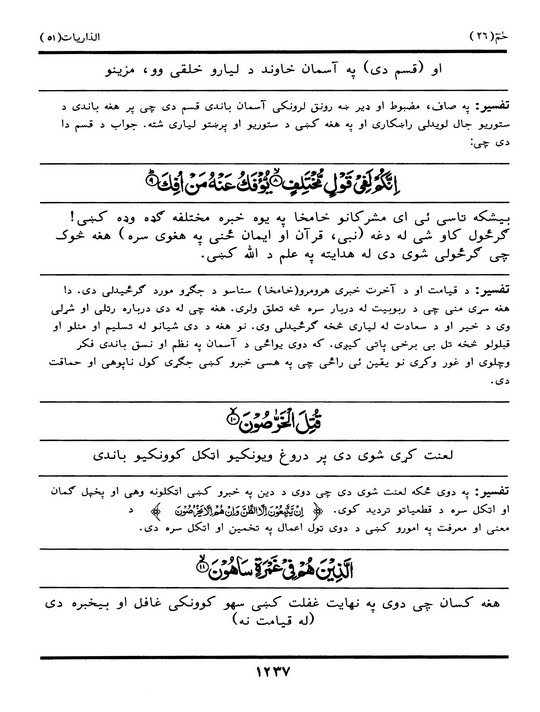 حٰمٓ (۲۶) الذاريات (۵۱)
او (قسم دی) په آسمان خاوند د ليارو خلقي وو، مزينو
تفسير: په صاف، مضبوط او ډير ښه رونق لرونکي آسمان باندي قسم دی چي پر هغه باندي د
ستوريو جال لويدلی راښکاري او په هغه کښي د ستوريو او پرښتو لياري شته. جواب د قسم دا
دی چي:
اِنَّكُمْ لَفِيْ قَوْلٍ مُّخْتَلِفٍ ۸ يُّؤْفَكُ عَنْهُ مَنْ اُفِكَ ۹
بيشکه تاسي ئې ای مشرکانو خامخا په يوه خبره مختلفه ګډه وډه کښي!
ګرځول کاو شي له دغه (نبي، قرآن او ايمان ځني په هغوی سره) هغه څوک
چي ګرځولی شوی دی له هدايته په علم د الله کښي.
تفسير: د قيامت او د آخرت خبري هرومرو(خامخا) ستاسو د جګړو مورد ګرځيدلي دی. دا
هغه سړی مني چي د ربوبيت له دربار سره څه تعلق ولري. هغه چي له دې درباره رټلی او شړلی
وي د خير او د سعادت له لياري څخه ګرځيدلی وي. نو هغه د دې شيانو له تسليم او منلو او
قبلولو څخه تل بې برخي پاتي کيږي. که دوی يواځي د آسمان په نظم او نسق باندي فکر
وچلوي او غور وکړي نو يقين ئې راځي چي په هسي خبرو کښي جګړي کول ناپوهي او حماقت
دی.
قُتِلَ الْخَرّٰصُوْنَ ۱۰
لعنت کړی شوی دی پر دروغ ويونکيو اټکل کوونکيو باندي
تفسير: په دوی ځکه لعنت شوی دی چي دوی د دين په خبرو کښي اټکلونه وهي او پخپل ګمان
او اټکل سره د قطعياتو ترديد کوي. ﴿ اِنْ يَّتَّبِعُوْنَ اِلَّا الظَّنَّ وَاِنْ هُمْ اِلَّا يَخْرُصُوْنَ ﴾ د
معنی او معرفت په امورو کښي د دوی ټول اعمال په تخمين او اټکل سره دی.
الَّذِيْنَ هُمْ فِيْ غَمْرَةٍ سَاهُوْنَ ۱۱
هغه کسان چي دوی په نهايت غفلت کښي سهو کوونکی غافل او بيخبره دي
(له قيامت نه)
۱۲۳۷